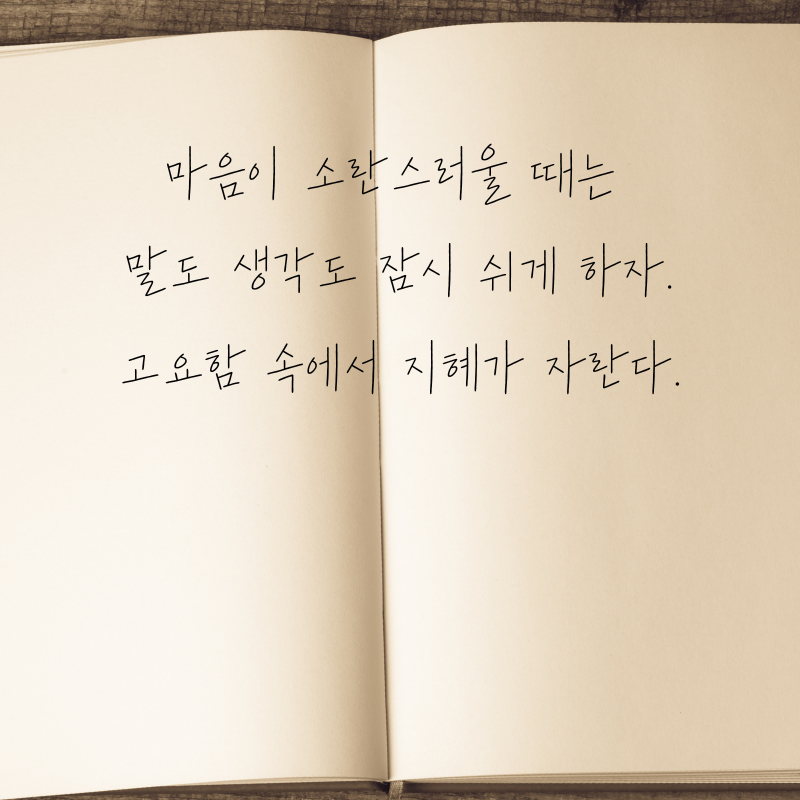 마음이 소란스러울 때는
말도 생각도 잠시 쉬게 하자.
고요함 속에서 지혜가 자란다.